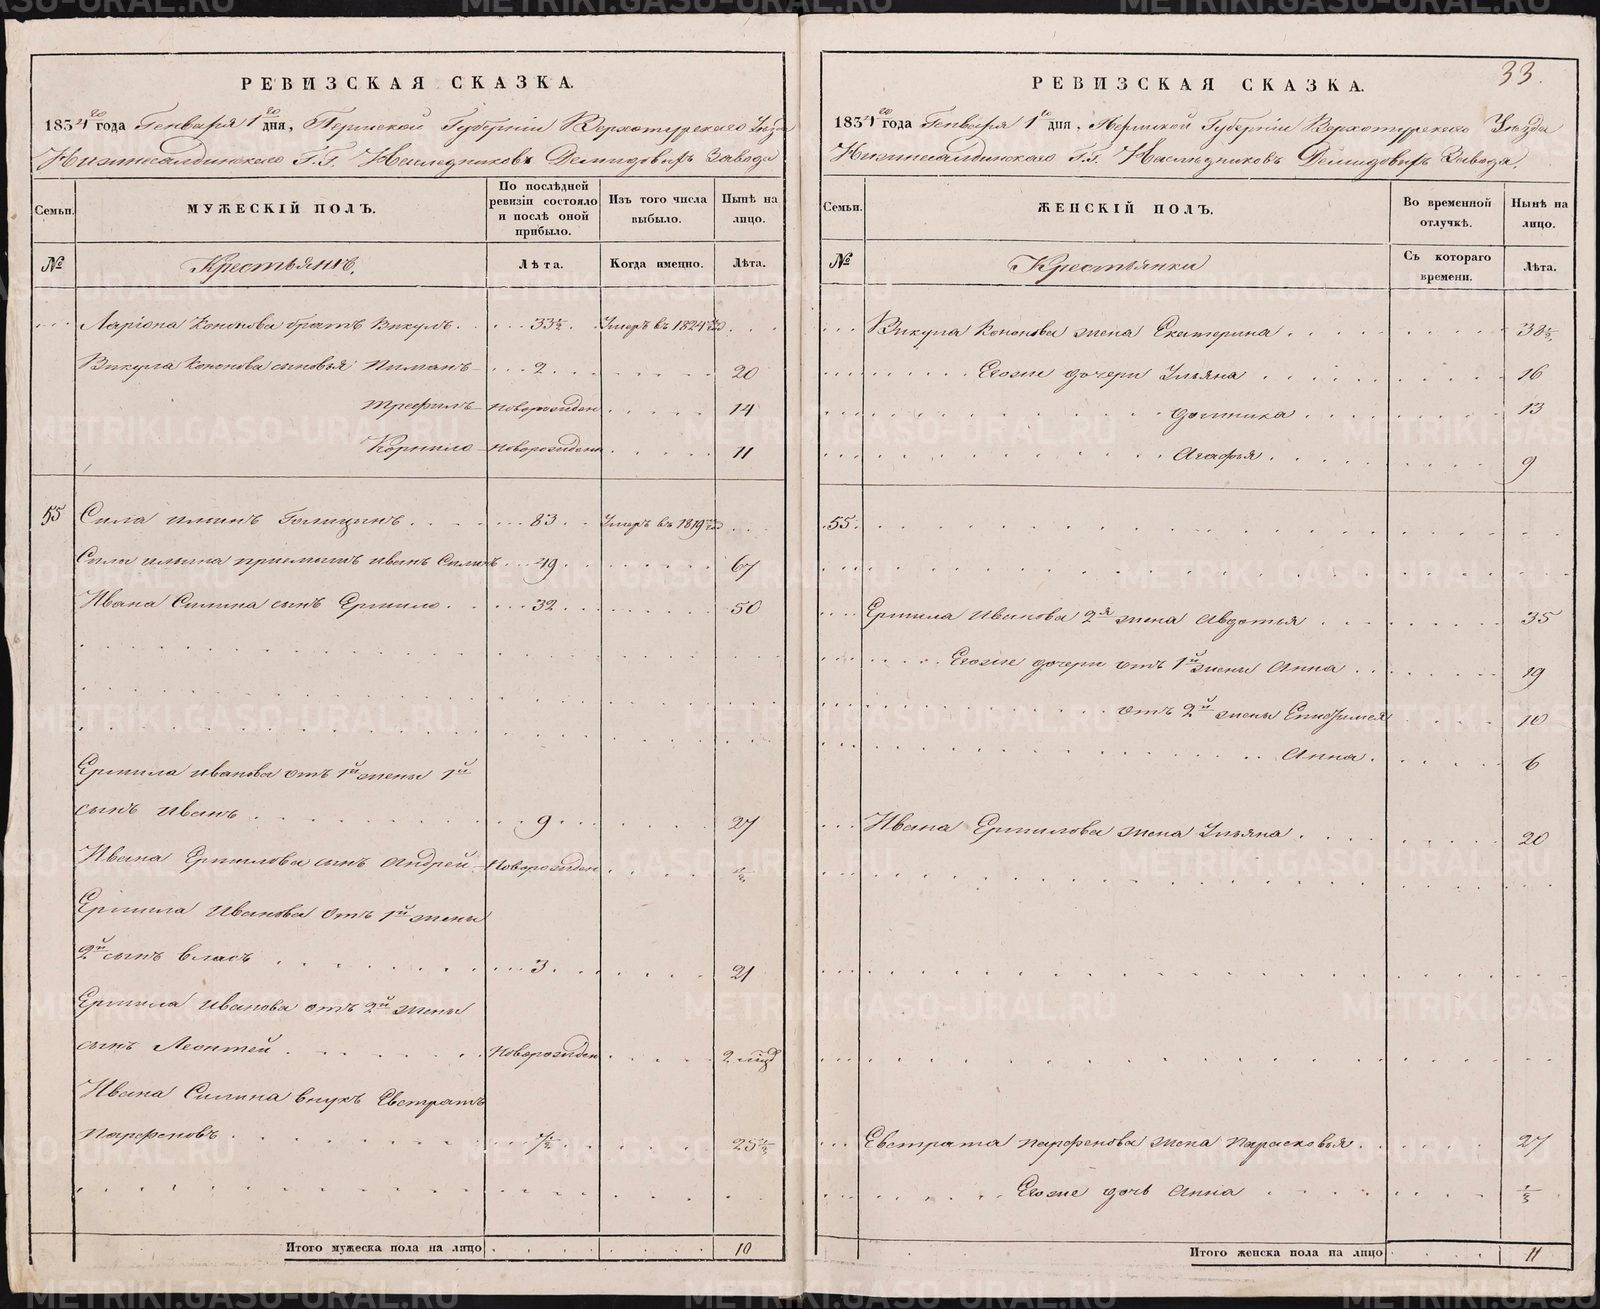 РЕВИЗСКАЯ СКАЗКА.
1834го года Генваря 1го дня, Пермской Губерніи Верхотурскаго Уезда
Нижнесалдинскаго Г.Г. Наследниковъ Демидовыхъ Завода
Семьи.
МУЖЕСКІЙ ПОЛЪ.
По послѣдней ревизіи состояло и послѣ оной прибыло.
Изъ того числа выбыло.
Нынѣ на лицо.
№
Крестьянъ.
Лѣта.
Когда именно.
Лѣта.
Ларіона Кононова братъ Викулъ. 33½. Умеръ въ 1824
Викула Кононова сыновья Пиманъ 2 20
Трефилъ новорожден 14
Корнило новорожденн 11
55 Сила Ильинъ Голицынъ 83 Умеръ въ 1819
Сила Ильина приемышъ Иванъ Силинъ 49 67
Ивана Силина сынъ Ермило 32 50
Ермила Иванова отъ 1й жены 1й
сынъ Иванъ 9 27
Ивана Ермилова сынъ Андрей новорожден ½
Ермила Иванова отъ 1й жены
2й сынъ Власъ 3 21
Ермила Иванова отъ 2й жены
сынъ Леонтей новорожден
Ивана Силина внукъ Евстратъ
Парфеновъ ½ 25½
Итого мужеска пола на лицо 10
33.
РЕВИЗСКАЯ СКАЗКА.
1834го года Генваря 1го дня, Пермской Губерніи Верхотурскаго Уезда
Нижнесалдинскаго Г.Г. Наследниковъ Демидовыхъ Завода.
Семьи.
ЖЕНСКІЙ ПОЛЪ.
Во временной отлучкѣ.
Нынѣ на лицо.
№
Крестьянки
Съ котораго времени.
Лѣта.
Викула Кононова жена Екатерина 38½
Егоже дочери Ульяна 16
Домника 13
Агафья 9
55.
Ермила Иванова 2я жена Авдотья 35
Егоже дочери отъ 1й жены Анна 19
отъ 2й жены 10
Анна 6
Ивана Ермилова жена Ульяна 20
Евстрата Парфенова жена Парасковья 27
Егоже дочь Анна ⅓
Итого женска пола на лицо 11
METRIKI.GASO-URAL.RU